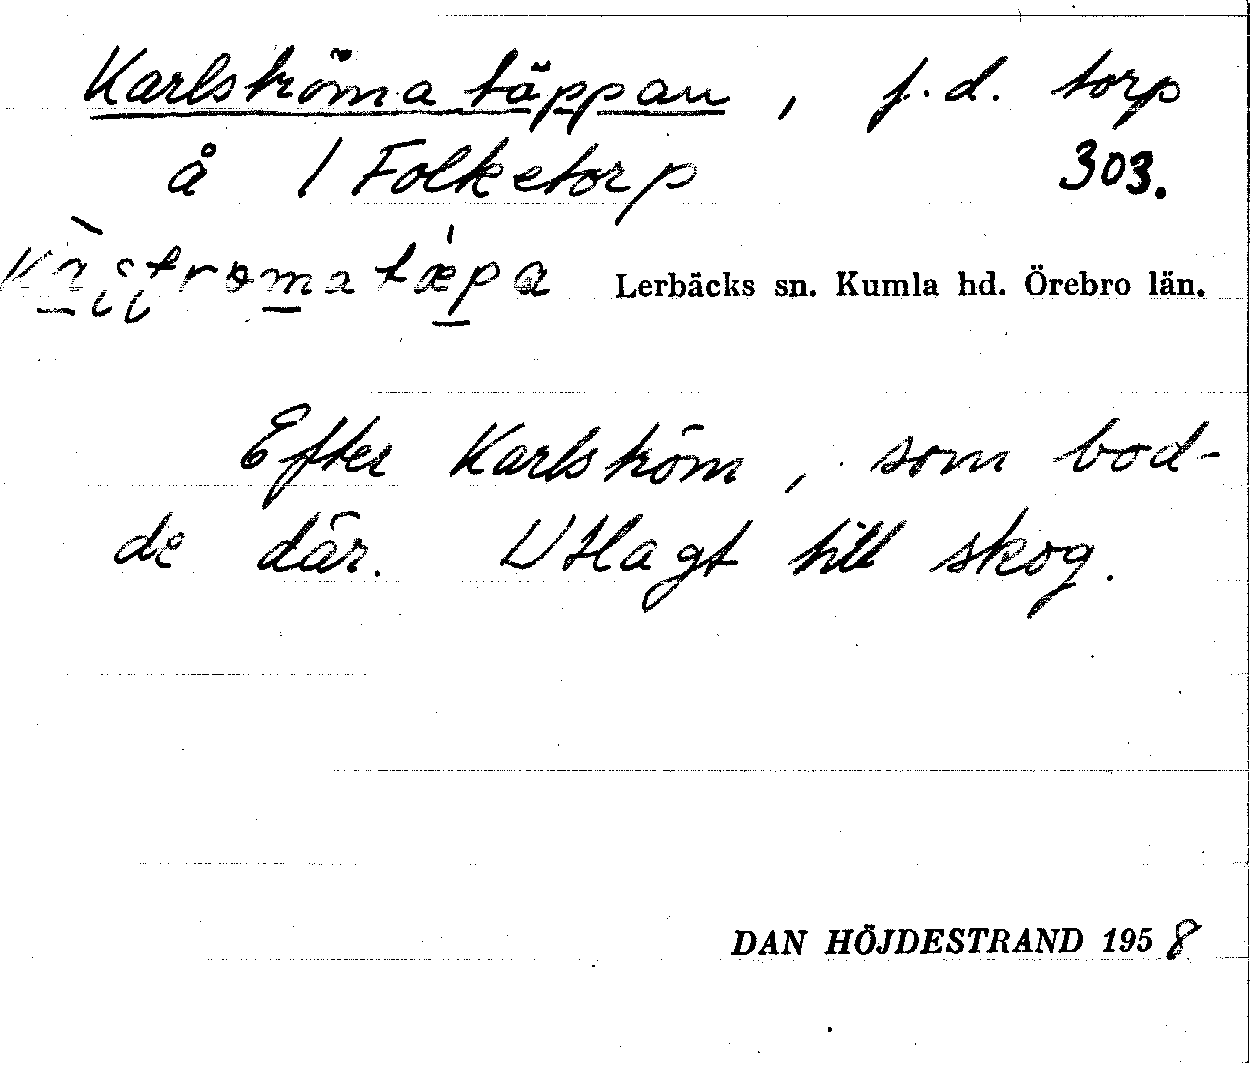 Karlströmatäppan, f.d. torp
å 1 Folketorp 303.
Lerbäcks sn. Kumla hd. Örebro län.
Efter Karlström, som bod-
de där. Utlagt till skog.
DAN HÖJDESTRAND 1958